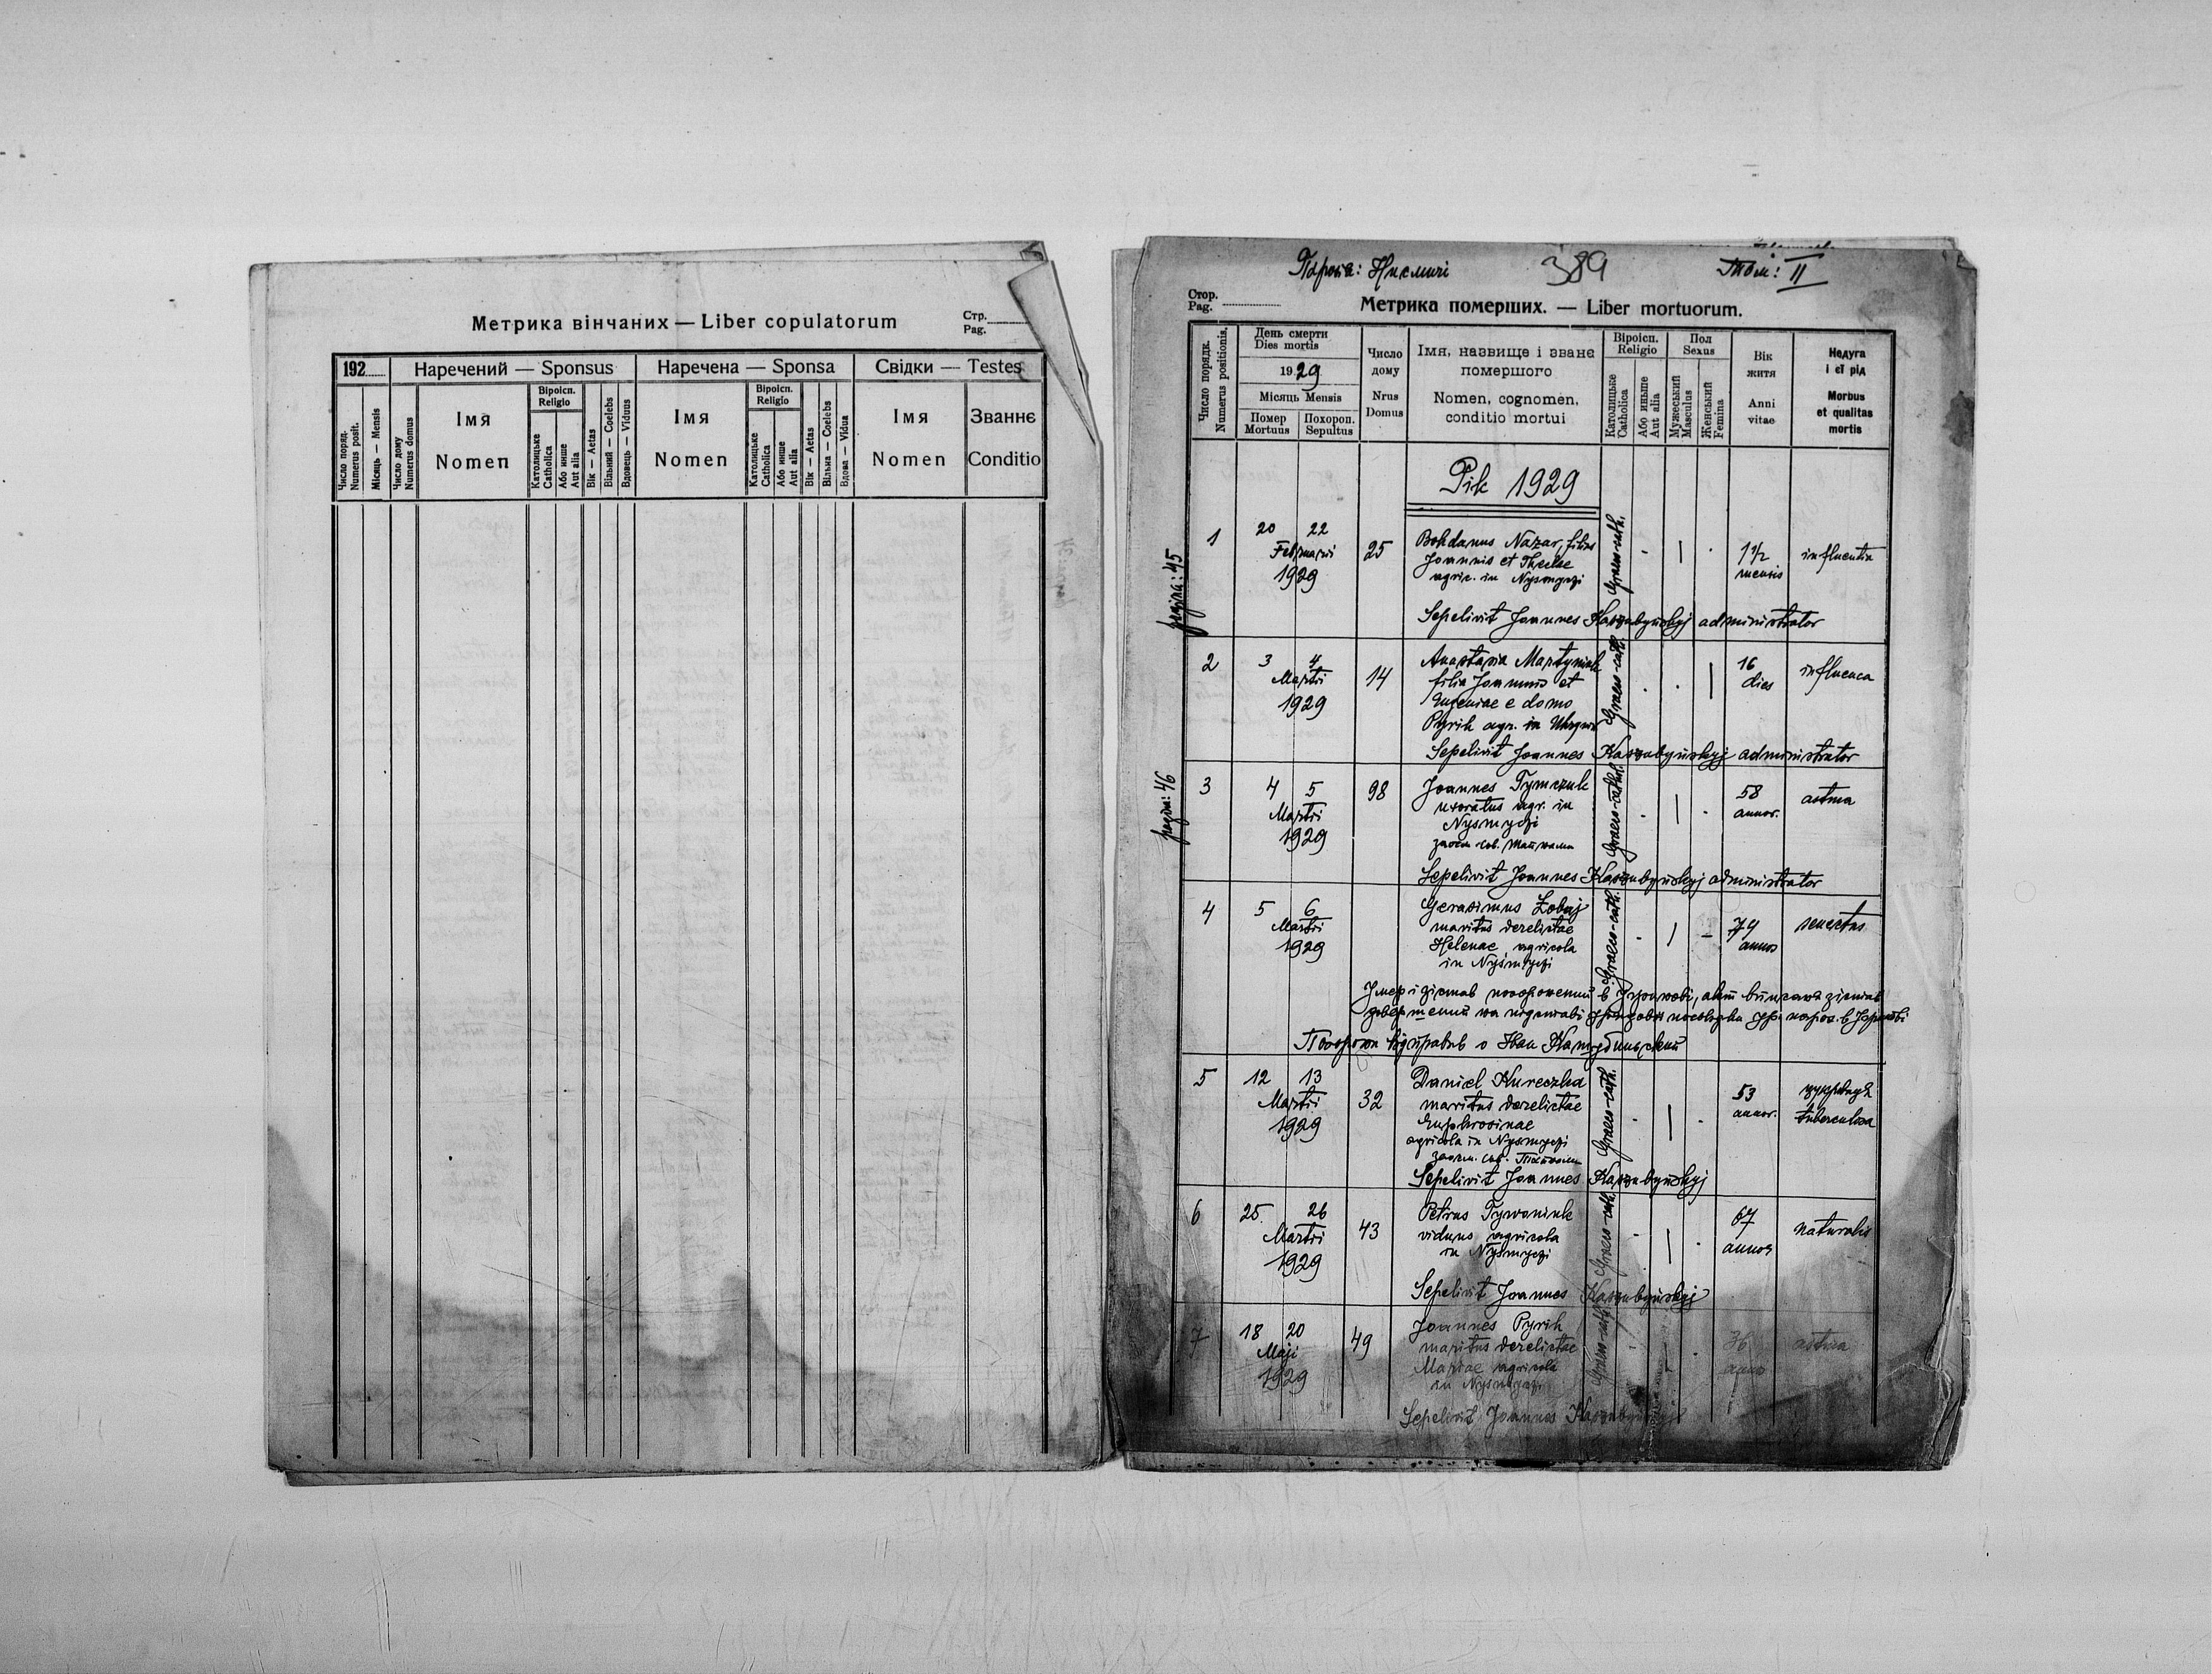 Метрика вінчаних — Liber copulatorum
Стр.
Pag.
192
Наречений — Sponsus
Наречена — Sponsa
Свідки — Testes
Число поряд.
Numerus posit.
Місяць — Mensis
Число дому
Numerus domus
Імя
Nomen
Віроісп.
Religio
Католицьке
Catholica
Або инше
Aut alia
Вік — Aetas
Вільний — Coelebs
Вдовець — Viduus
Імя
Nomen
Віроісп.
Religio
Католицьке
Catholica
Або инше
Aut alia
Вік — Aetas
Вільна — Coelebs
Вдова — Vidua
Імя
Nomen
Званнє
Conditio
389
Том: II
Стор.
Pag.
Метрика померших. — Liber mortuorum.
Число порядк.
Numerus positionis.
День смерти
Dies mortis
1929
Місяць Mensis
Помер
Mortuus
Похорон.
Sepultus
Число
дому
Nrus
Domus
Імя, назвище і званє
помершого
Nomen, cognomen,
conditio mortui
Віроісп.
Religio
Католицьке
Catholica
Або иньше
Aut alia
Пол
Sexus
Мужеський
Masculus
Женський
Femina
Вік
житя
Anni
vitae
Недуга
і єї рід
Morbus
et qualitas
mortis
Рік 1929
pagina: 45
1
20 22
Februarii
1929
25
Bohdanus Nazar, filius
Joannis et Theclae
agric. in Nysmyczi
Graeco-cath.
1 1/2
mensis
influentia
Sepelivit Joannes Kaszubyńskyj administrator
2
3 4
Martii
1929
14
Anastasia Martyniuk
filia Joannis et
Eugeniae e domo
Pyrih agr. in
Graeco-cath.
16
dies
influenca
Sepelivit Joannes Kaszubyńskyj administrator
pagina: 46
3
4 5
Martii
1929
98
Joannes Tymczuk
uxoratus agr. in
Nysmyczi
Graeco-cathol.
58
annor.
astma
Sepelivit Joannes Kaszubyńskyj administrator
4
5 6
Martii
1929
Gerasimus Zobuj
maritus derelictae
Helenae agricola
in Nysmyczi
Graeco-cath.
79
annos
senectus
Похорон відправив о Іван Кашубинський
5
12 13
Martii
1929
32
Daniel Kureczka
maritus derelictae
Euphrosinae
agricola in Nysmyczi
Graeco-cath.
53
annor.
tuberculosa
Sepelivit Joannes Kaszubyńskyj
6
25 26
Martii
1929
43
Petrus Tywoniuk
viduus agricola
in Nysmyczi
Graeco-cath.
67
annos
naturalis
Sepelivit Joannes Kaszubyńskyj
7
18 20
Maji
1929
49
Joannes Pyrih
maritus derelictae
Mariae agricola
in Nysmyczi
Graeco-cath.
36
anno
astma
Sepelivit Joannes Kaszubyńskyj